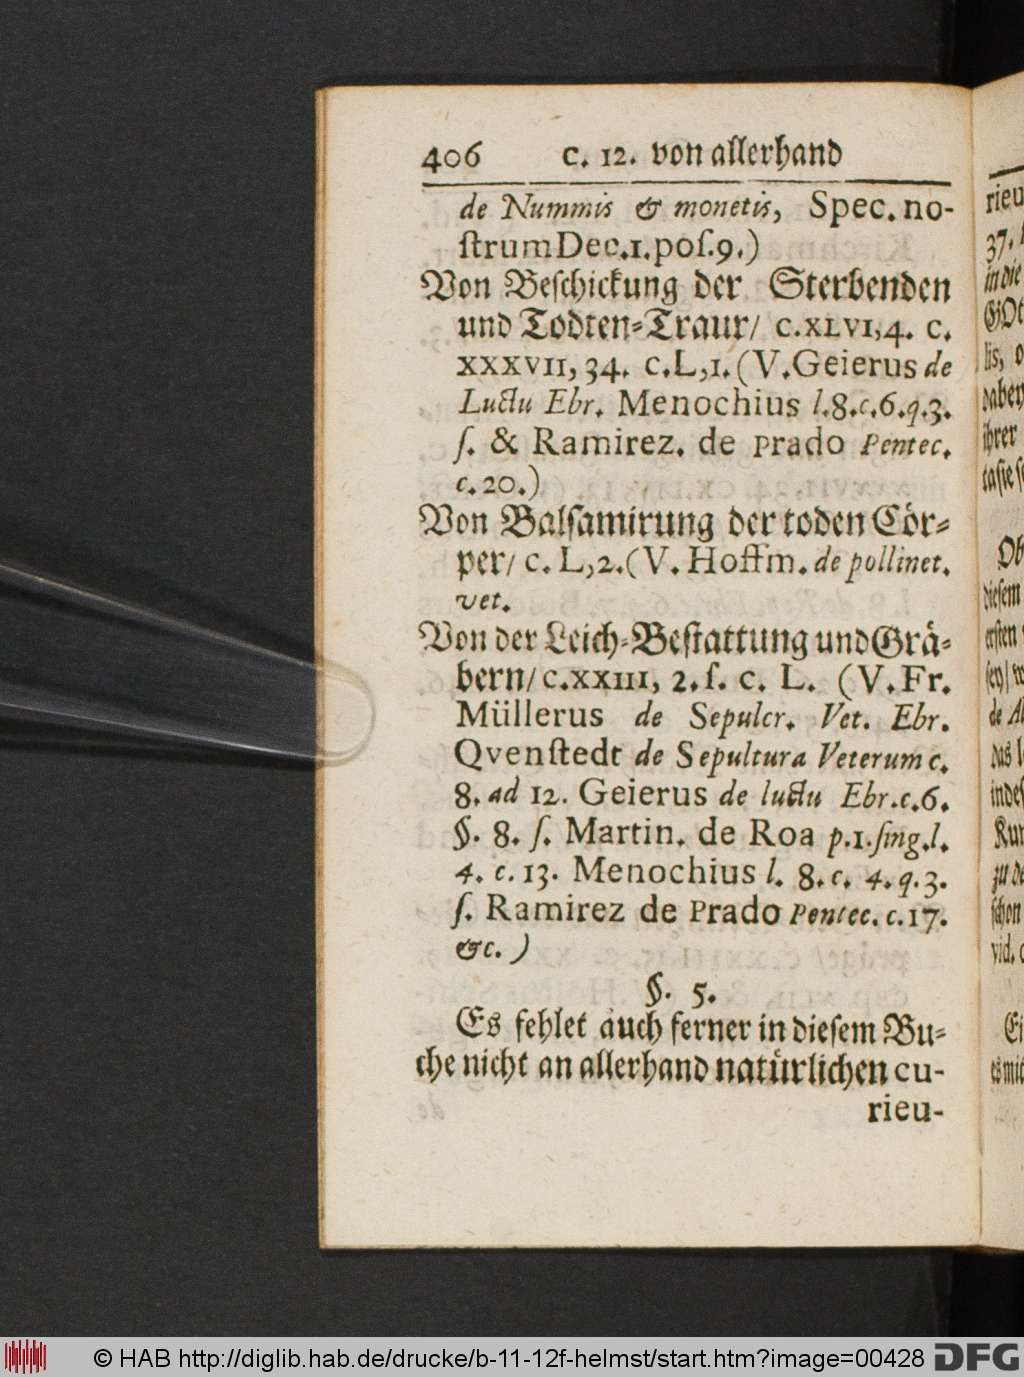 406 c. 12. von allerhand
de Nummis & monetis, Spec. no-
ſtrum Dec. 1. poſ. 9.)
Von Beſchickung der Sterbenden
und Todten-Traur/ c. XLVI, 4. c.
XXXVII, 34. c. L, 1. (V. Geierus de
Luctu Ebr. Menochius l. 8. c. 6. q. 3.
ſ. & Ramirez. de Prado Pentec.
c. 20.)
Von Balſamirung der toden Cör-
per/ c. L, 2. (V. Hoffm. de pollinct.
vet.
Von der Leich-Beſtattung und Grä-
bern/ c. XXIII, 2. ſ. c. L. (V. Fr.
Müllerus de Sepulcr. Vet. Ebr.
Qvenſtedt de Sepultura Veterum c.
8. ad 12. Geierus de luctu Ebr. c. 6.
§. 8. ſ. Martin. de Roa p. 1. ſing. l.
4. c. 13. Menochius l. 8. c. 4. q. 3.
ſ. Ramirez de Prado Pentec. c. 17.
&c. )
§. 5.
Es fehlet auch ferner in dieſem Bu-
che nicht an allerhand natürlichen cu-
rieu-
© HAB http://diglib.hab.de/drucke/b-11-12f-helmst/start.htm?image=00428 DFG